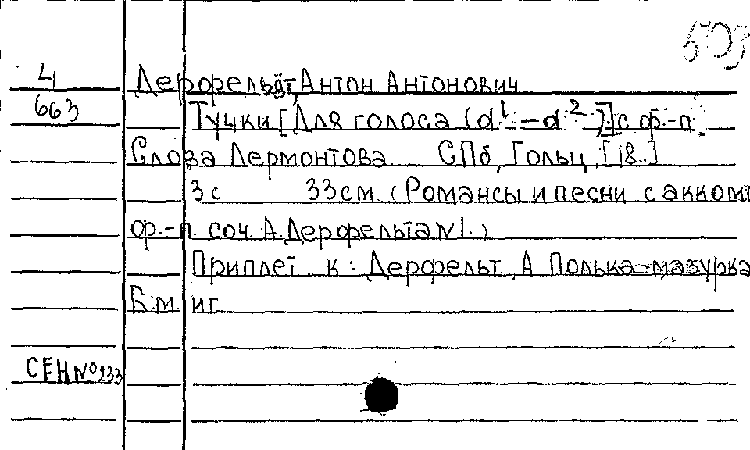 503
4
663
Дерфельдт, Антон Антонович
Тучки [Для голоса (d¹ – d²)] с ф.-п.
Слова Лермонтова СПб, Гольц, [18..]
3 с 33 см. (Романсы и песни с акком
ф.-п соч А. Дерфельта №1.)
Приплет к: Дерфельт, А Полька-мазурка
Б.м. и г.
СЕН №233